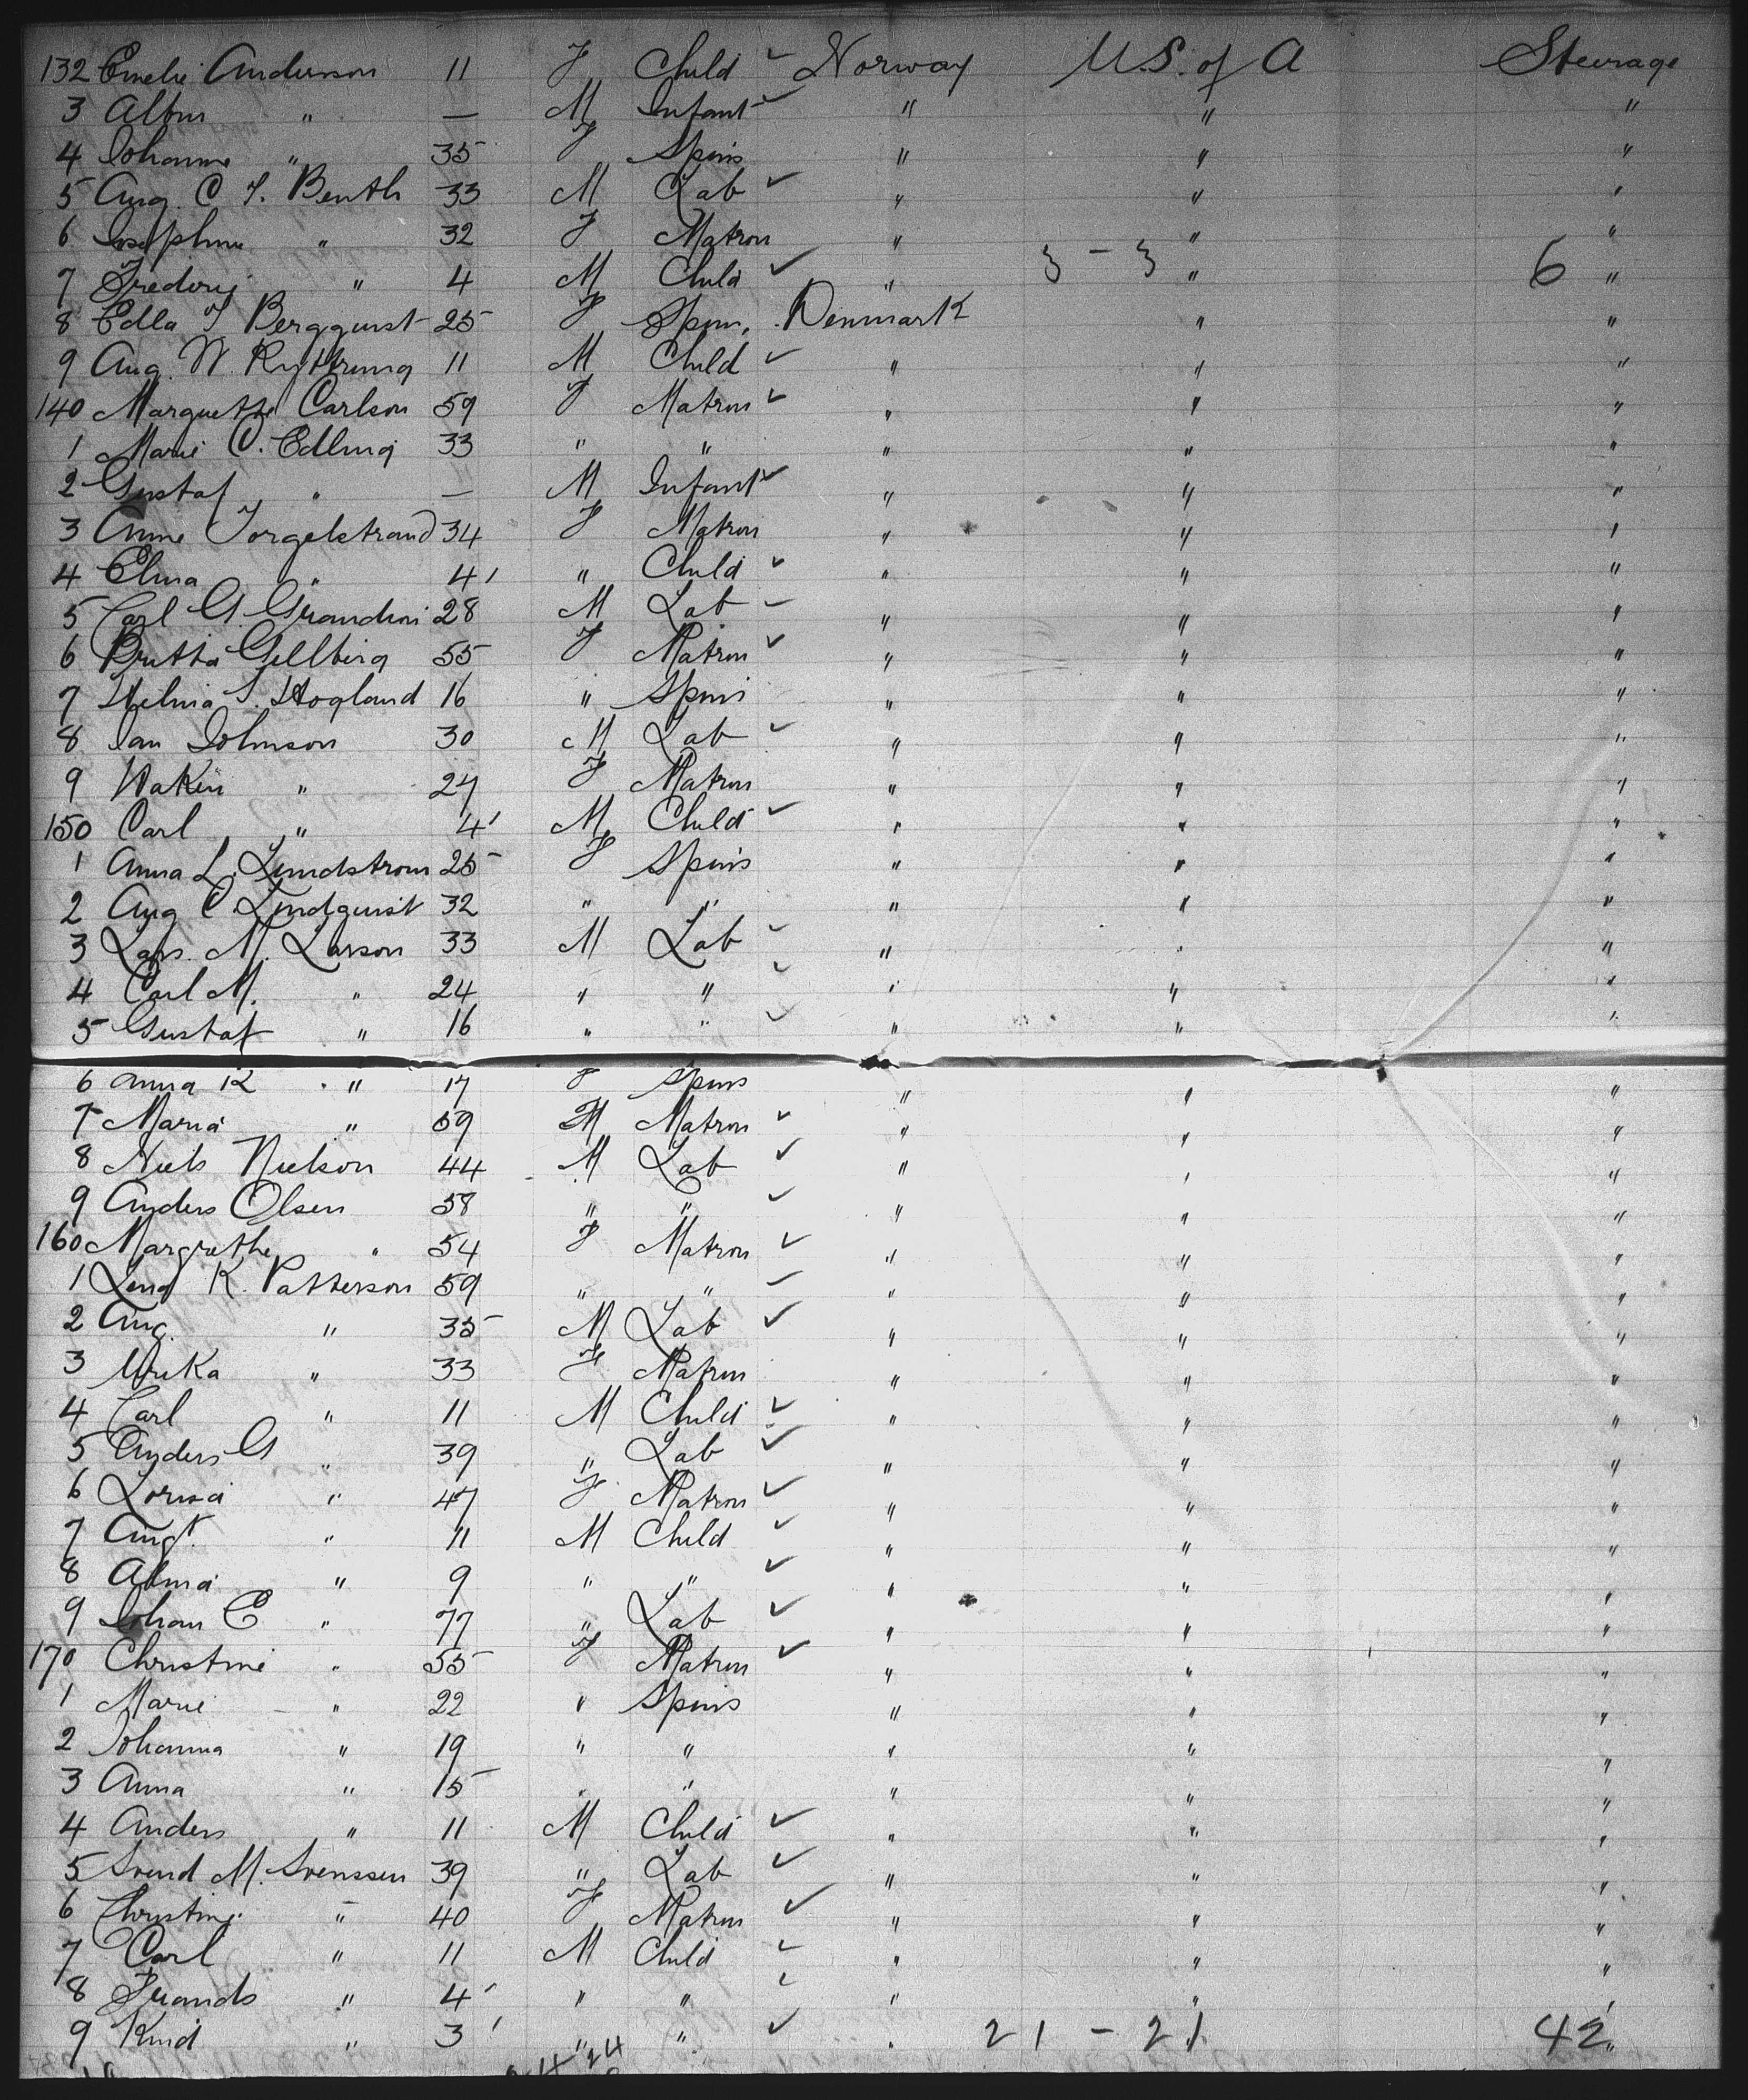 132 Emelie Anderson 11 F Child ✓ Norway U.S. of A Steerage
3 " — M Infant ✓ " " "
4 Johanne " 35 F Spins " " "
5 Aug. C F. Benth 33 M Lab ✓ " " "
6 Josephine " 32 F Matron " " "
7 " 4 M Child ✓ " 3 - 3 " 6 "
8 Edla F Bergquist 25 F Spin. Denmark " "
9 Aug. W. 11 M Child ✓ " " "
140 Marguethe Carlson 59 F Matron ✓ " " "
1 Marie C. Edling 33 " " " " "
2 Gustaf " — M Infant ✓ " " "
3 Anne Torgelstrand 34 F Matron " " "
4 Elina " 4 ' " Child ✓ " " "
5 Carl G. Grandin 28 M Lab ✓ " " "
6 Britta Gellberg 55 F Matron ✓ " " "
7 S. Hogland 16 " Spins " " "
8 Jan Johnson 30 M Lab ✓ " " "
9 " 24 F Matron " " "
150 Carl " 4 ' M Child ✓ " " "
1 Anna L. Lundstrom 25 F Spins " " "
2 Aug C Lindquist 32 " " " " "
3 Lars. M. Larson 33 M Lab ✓ " " "
4 Carl M. " 24 " " ✓ " " "
5 Gustaf " 16 " " ✓ " " "
6 Anna K " 17 F Spins " " "
7 Maria " 59 M Matron ✓ " " "
8 Niels Nielson 44 M Lab ✓ " " "
9 Anders Olsen 58 " " ✓ " " "
160 Margrethe " 54 F Matron ✓ " " "
1 Lena K. Patterson 59 " " ✓ " " "
2 Aug. " 35 M Lab ✓ " " "
3 Ulrika " 33 F Matron " " "
4 Carl " 11 M Child ✓ " " "
5 Anders G " 39 " Lab ✓ " " "
6 " 47 F Matron ✓ " " "
7 Augt. " 11 M Child ✓ " " "
8 Alma " 9 " " ✓ " " "
9 Johan C " 77 " Lab ✓ " " "
170 Christine " 55 F Matron ✓ " " "
1 Marie " 22 " Spins " " "
2 Johanna " 19 " " " " "
3 Anna " 15 " " " " "
4 Anders " 11 M Child ✓ " " "
5 Svend M. Svenssen 39 " Lab ✓ " " "
6 Christine " 40 F Matron ✓ " " "
7 Carl " 11 M Child ✓ " " "
8 Frands " 4 ' " " ✓ " " "
9 Knid " 3 ' " " ✓ " 21 - 21 42 "
24